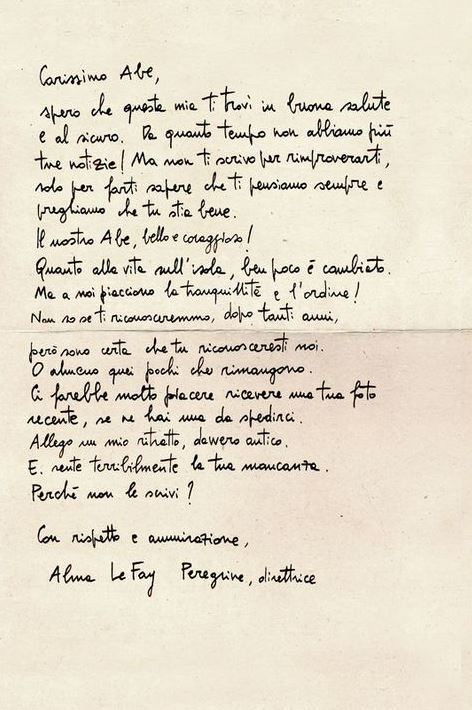 Carissimo Abe,
spero che questa mia ti trovi in buona salute
e al sicuro. Da quanto tempo non abbiamo più
tue notizie! Ma non ti scrivo per rimproverarti,
solo per farti sapere che ti pensiamo sempre e
preghiamo che tu stia bene.
Il nostro Abe, bello e coraggioso!
Quanto alla vita sull'isola, ben poco è cambiato.
Ma a noi piacciono la tranquillità e l'ordine!
Non so se ti riconosceremmo, dopo tanti anni,
però sono certa che tu riconosceresti noi.
O almeno quei pochi che rimangono.
Ci farebbe molto piacere ricevere una tua foto
recente, se ne hai una da spedirci.
Allego un mio ritratto, davvero antico.
E. sente terribilmente la tua mancanza.
Perché non le scrivi?
Con rispetto e ammirazione,
Alma LeFay Peregrine, direttrice